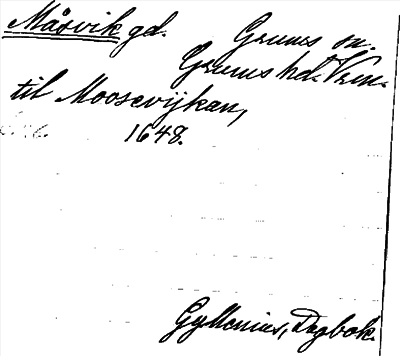 Måsvik gd. Grums sn.
Grums hd. Vrm.
til Moosevijkan,
1648.
Gyllenius, Dagbok.